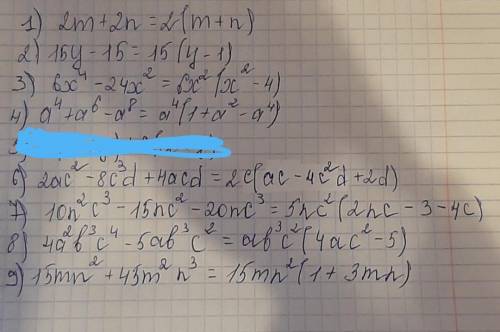 1) 2m+2n=2(m+n)
2) 15y-15=15(y-1)
3) 6x⁴-24x²=6x²(x²-4)
4) a⁴+a⁶-a⁸=a⁴(1+a²-a⁴)
6) 2ac²-8c³d+4acd=2c(ac-4c²d+2d)
7) 10n²c³-15nc²-20nc³=5nc²(2nc-3-4c)
8) 4a²b³c⁴-5ab³c²=ab³c²(4ac²-5)
9) 15mn²+45m²n³=15mn²(1+3mn)